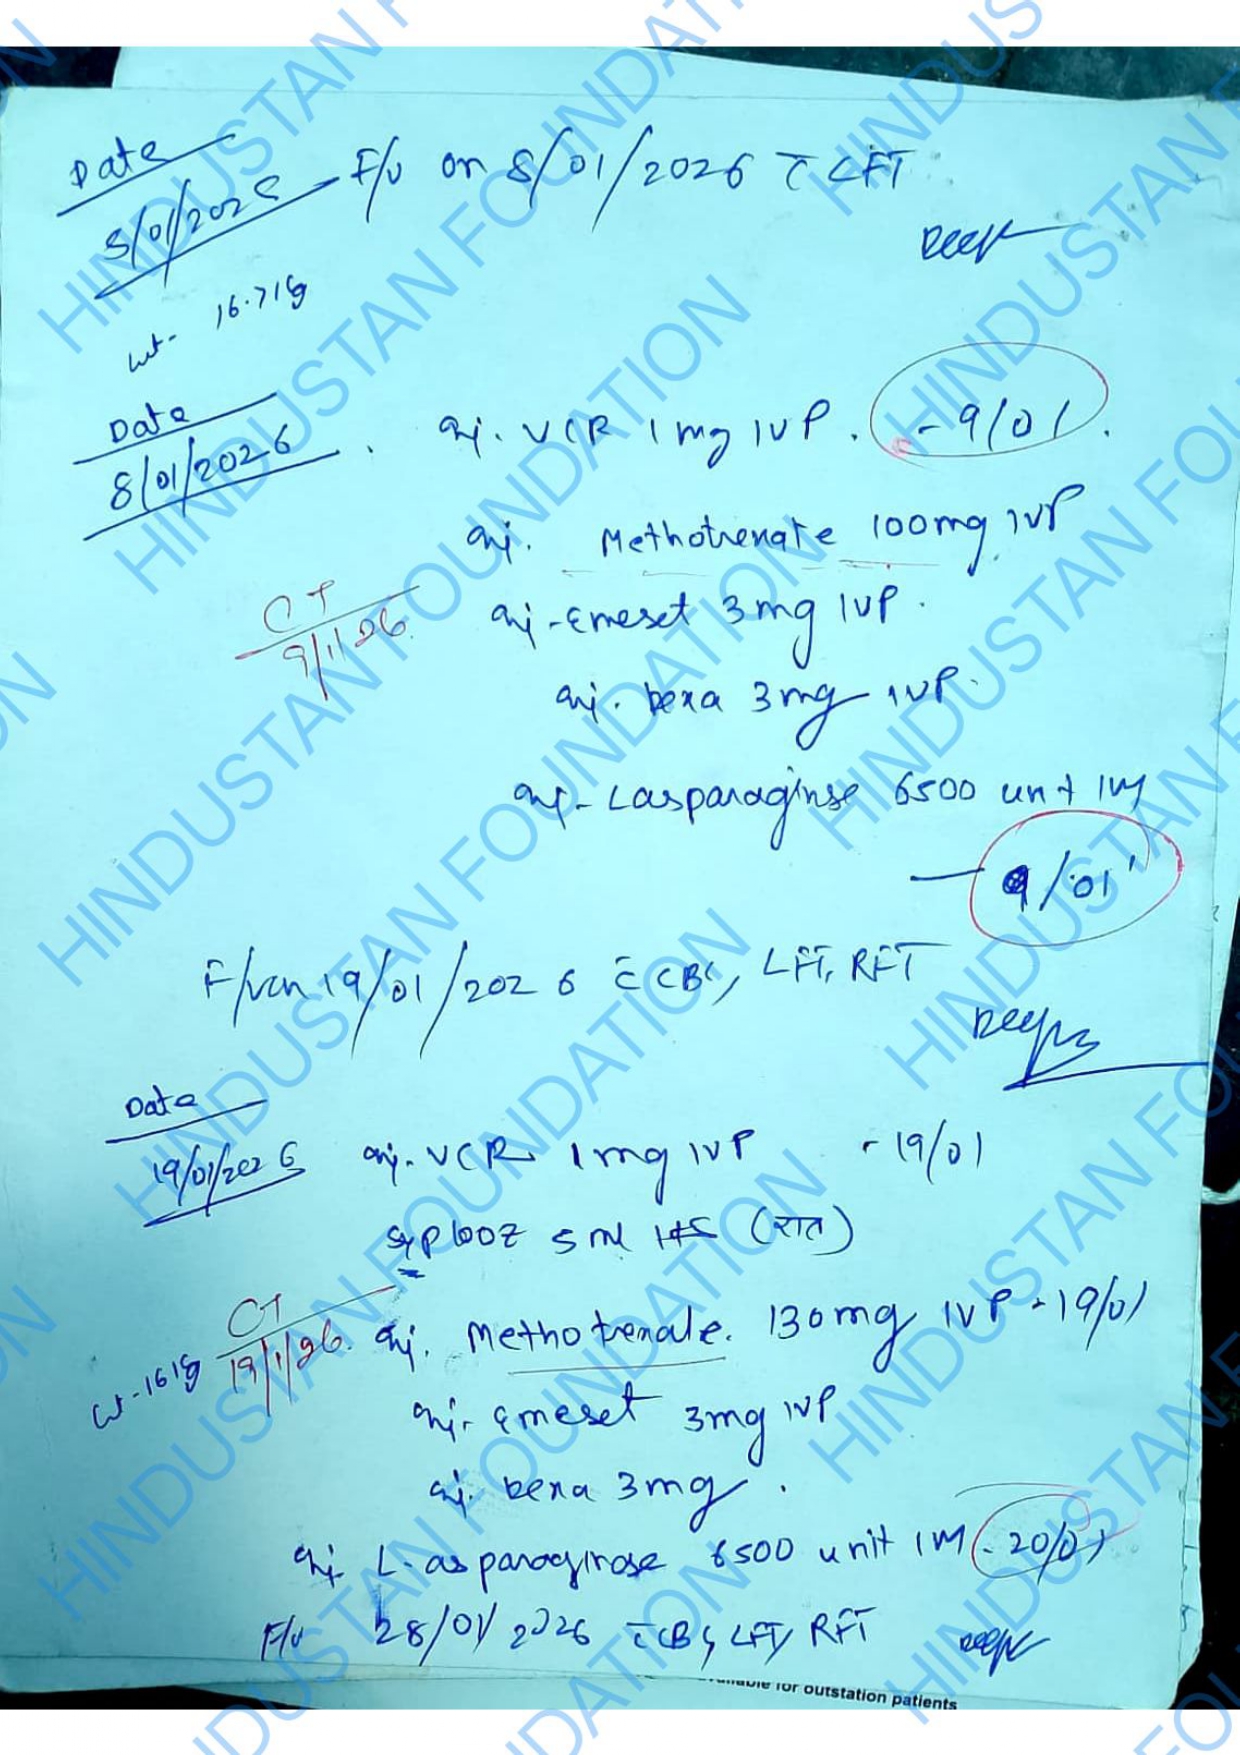 Date
5/01/2026 F/U on 8/01/2026 c̄ LFT
wt- 16.7kg
Date
8/01/2026. Inj. VCR 1mg IVP. - 9/01.
Inj. Methotrexate 100mg IVP
CT
9/1/26
Inj-Emeset 3mg IVP.
Inj. Dexa 3mg IVP.
Inj- Lasparaginse 6500 unt IM
— 9/01
F/u on 19/01/2026 c̄ CBC, LFT, RFT
Date
19/01/2026 Inj. VCR 1mg IVP - 19/01
Syp looz 5ml HS (रात)
CT
19/1/26.
wt-16kg
Inj. Methotrexale. 130mg IVP - 19/01
Inj- Emeset 3mg IVP
Inj. Dexa 3mg.
Inj. L-asparaginase 6500 unit IM - 20/01
F/u 28/01/2026 c̄ CBC, LFT, RFT
for outstation patients
HINDUSTAN FOUNDATION